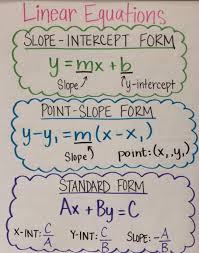 Linear Equations
SLOPE-INTERCEPT FORM
y = mx + b
Slope y-intercept
POINT-SLOPE FORM
y-y₁ = m (x-x₁)
Slope point: (x₁, y₁)
STANDARD FORM
Ax + By = C
X-INT: C/A Y-INT: C/B SLOPE: -A/B